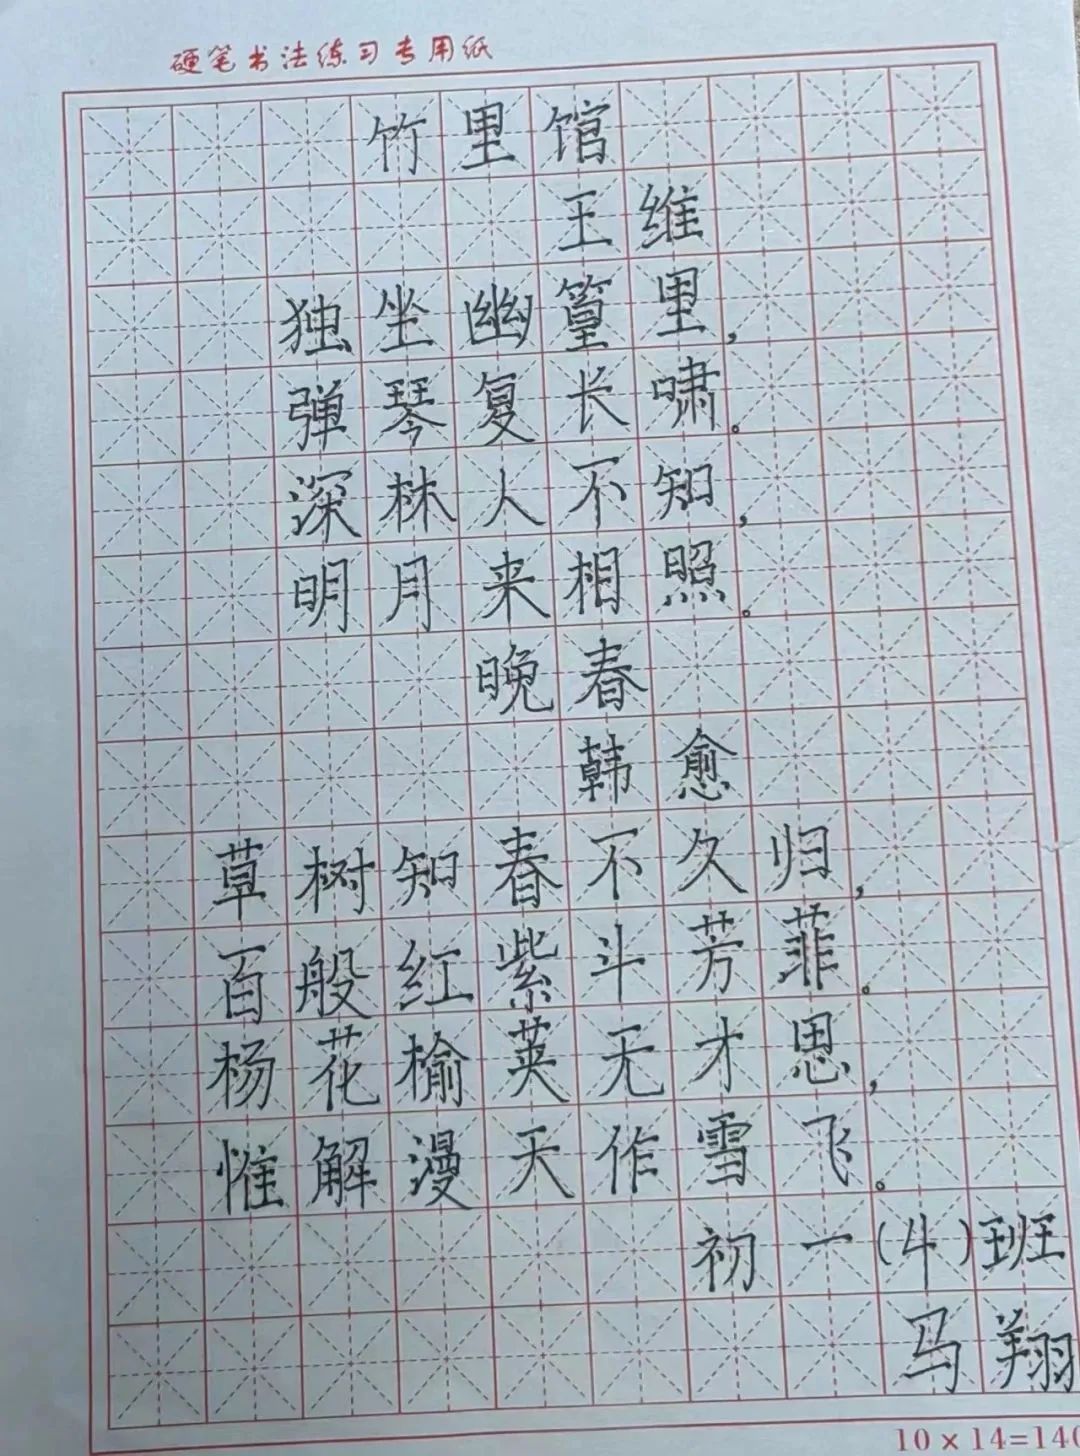 硬笔书法练习专用纸
竹里馆
王维
独坐幽篁里,
弹琴复长啸。
深林人不知,
明月来相照。
晚春
韩愈
草树知春不久归,
百般红紫斗芳菲。
杨花榆荚无才思,
惟解漫天作雪飞。
初一(4)班
马翔
10×14=140